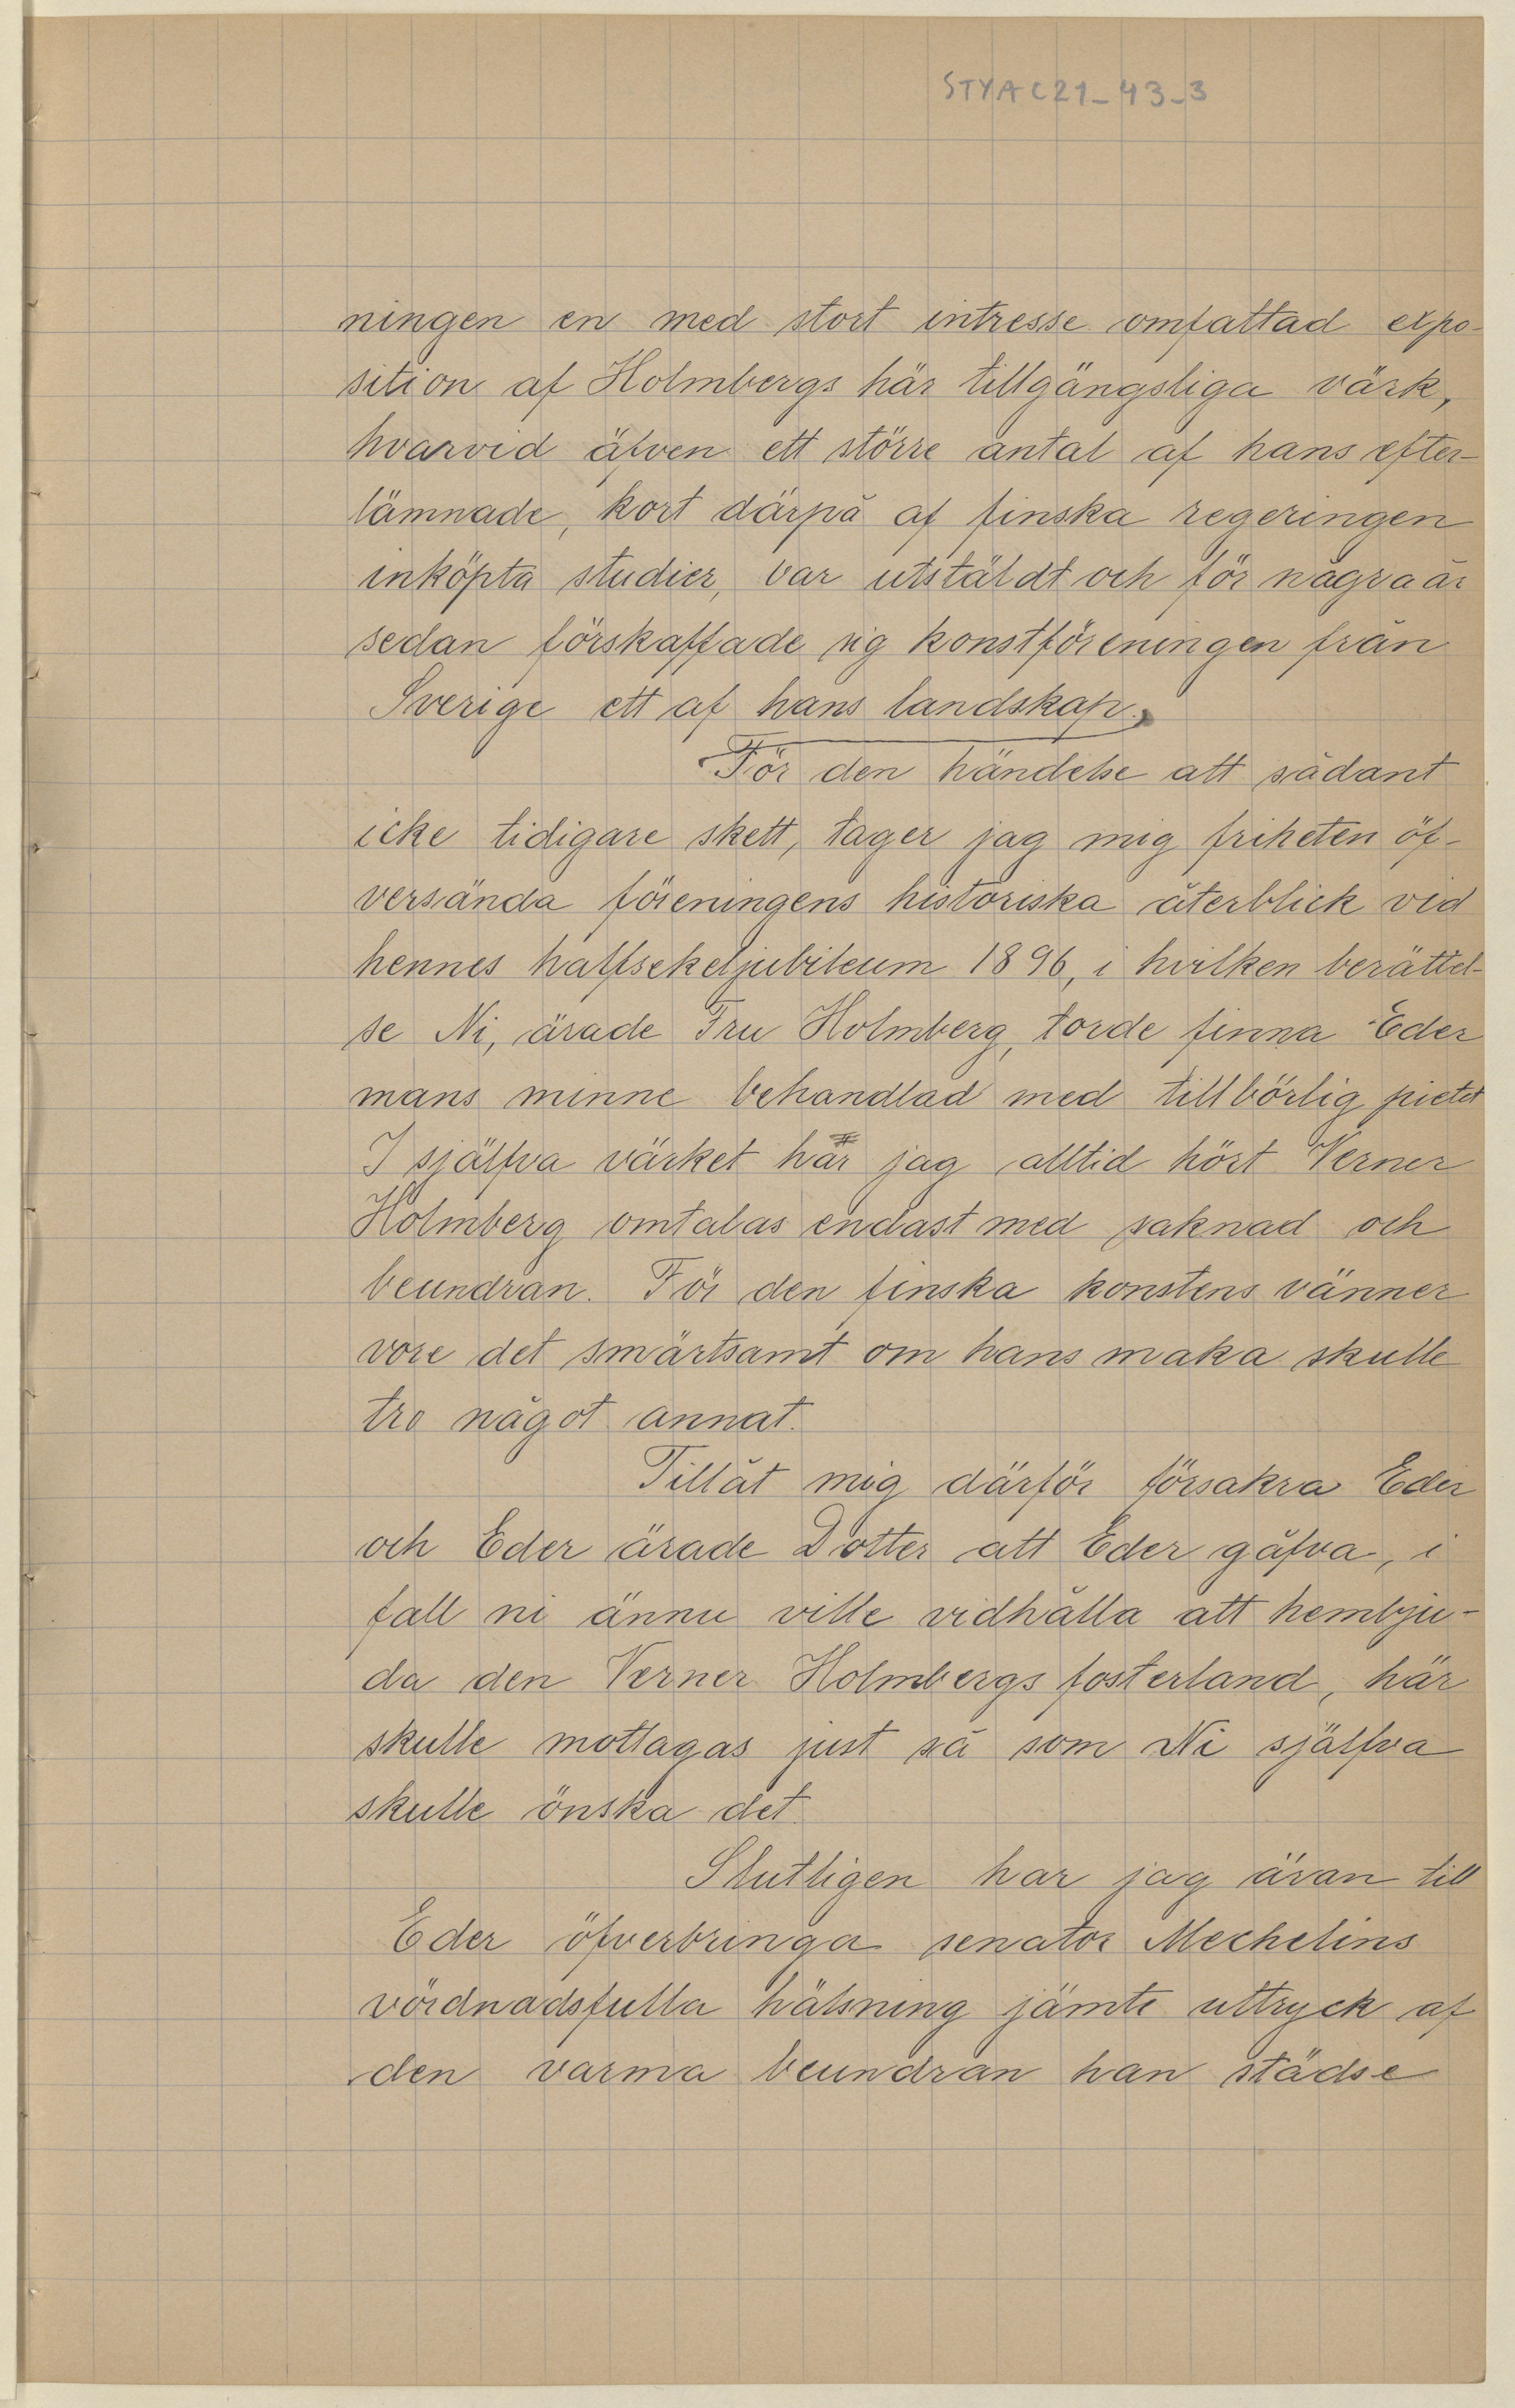 STYA C21_43_3
ningen en med stort intresse omfattad expo-
sition af Holmbergs här tillgängsliga värk,
hvarvid äfven ett större antal af hans efter-
lämnade, kort därpå af finska regeringen
inköpta studier, var utstäldt och för några år
sedan förskaffade sig konstföreningen från
Sverige ett af hans landskap.
För den händelse att sådant
icke tidigare skett, tager jag mig friheten öf-
versända föreningens historiska återblick vid
hennes halfsekeljubileum 1896, i hvilken berättel-
se Ni, ärade Fru Holmberg, torde finna Eder
mans minne behandlad med tillbörlig pietet
I själfva värket har jag alltid hört Verner
Holmberg omtalas endast med saknad och
beundran. För den finska konstens vänner
vore det smärtsamt om hans maka skulle
tro något annat.
Tillåt mig därför försäkra Eder
och Eder ärade Dotter att Eder gåfva, i
fall ni ännu ville vidhålla att hembju-
da den Verner Holmbergs fosterland, här
skulle mottagas just så som Ni själfva
skulle önska det.
Slutligen har jag äran till
Eder öfverbringa senator Mechelins
vördnadsfulla hälsning jämte uttryck af
den varma beundran han städse